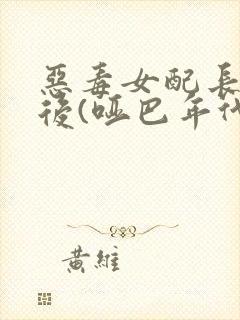 惡毒女配長
後(啞巴年代
黃維